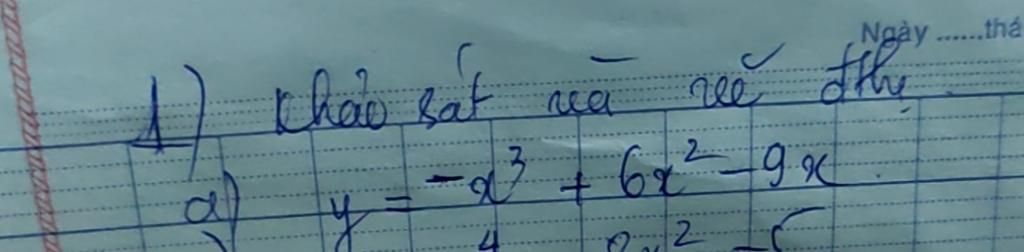 Ngày ......thá
1) Khảo sát và vẽ đthị
a) y = -x³ + 6x² - 9x
4 2x² - 5